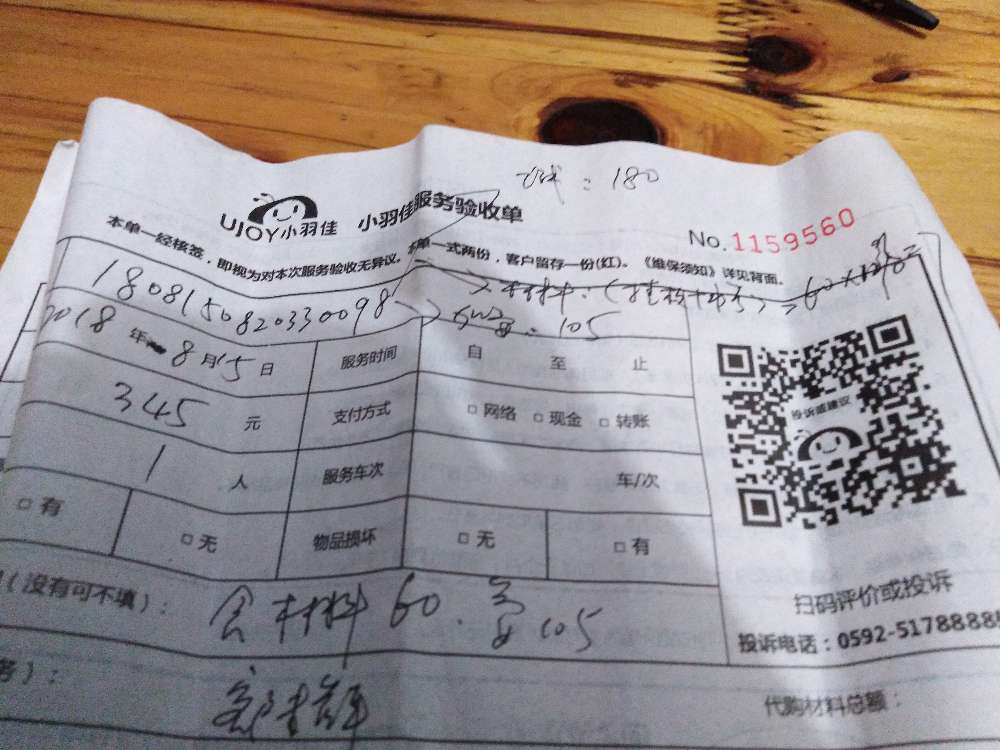 180
UJOY小羽佳 小羽佳服务验收单
No.1159560
本单一经核签，即视为对本次服务验收无异议。本单一式两份，客户留存一份(红)。《维保须知》详见背面。
1808150820330098
105
2018年8月15日 服务时间 自 至 止
345元 支付方式 □网络 □现金 □转账
投诉或建议
1人 服务车次 车/次
□有 □无 物品损坏 □无 □有
(没有可不填)： 含材料60. 105
扫码评价或投诉
投诉电话：0592-5178888
务)：
代购材料总额：